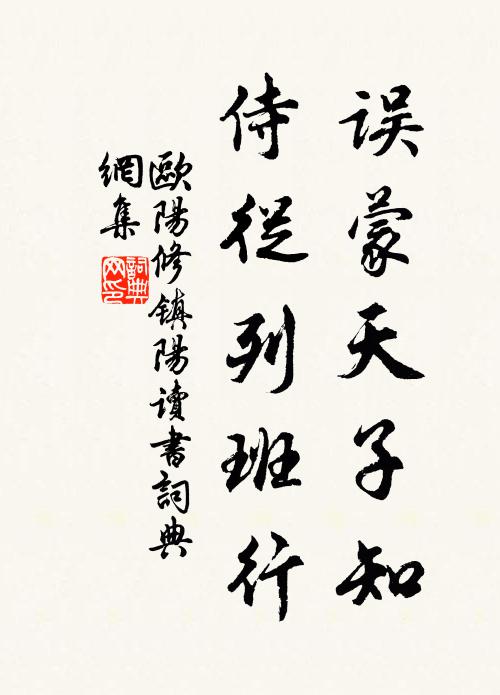 误蒙天子知
侍從列班行
歐陽修鎮陽讀書詞典
網集
詞典
网印